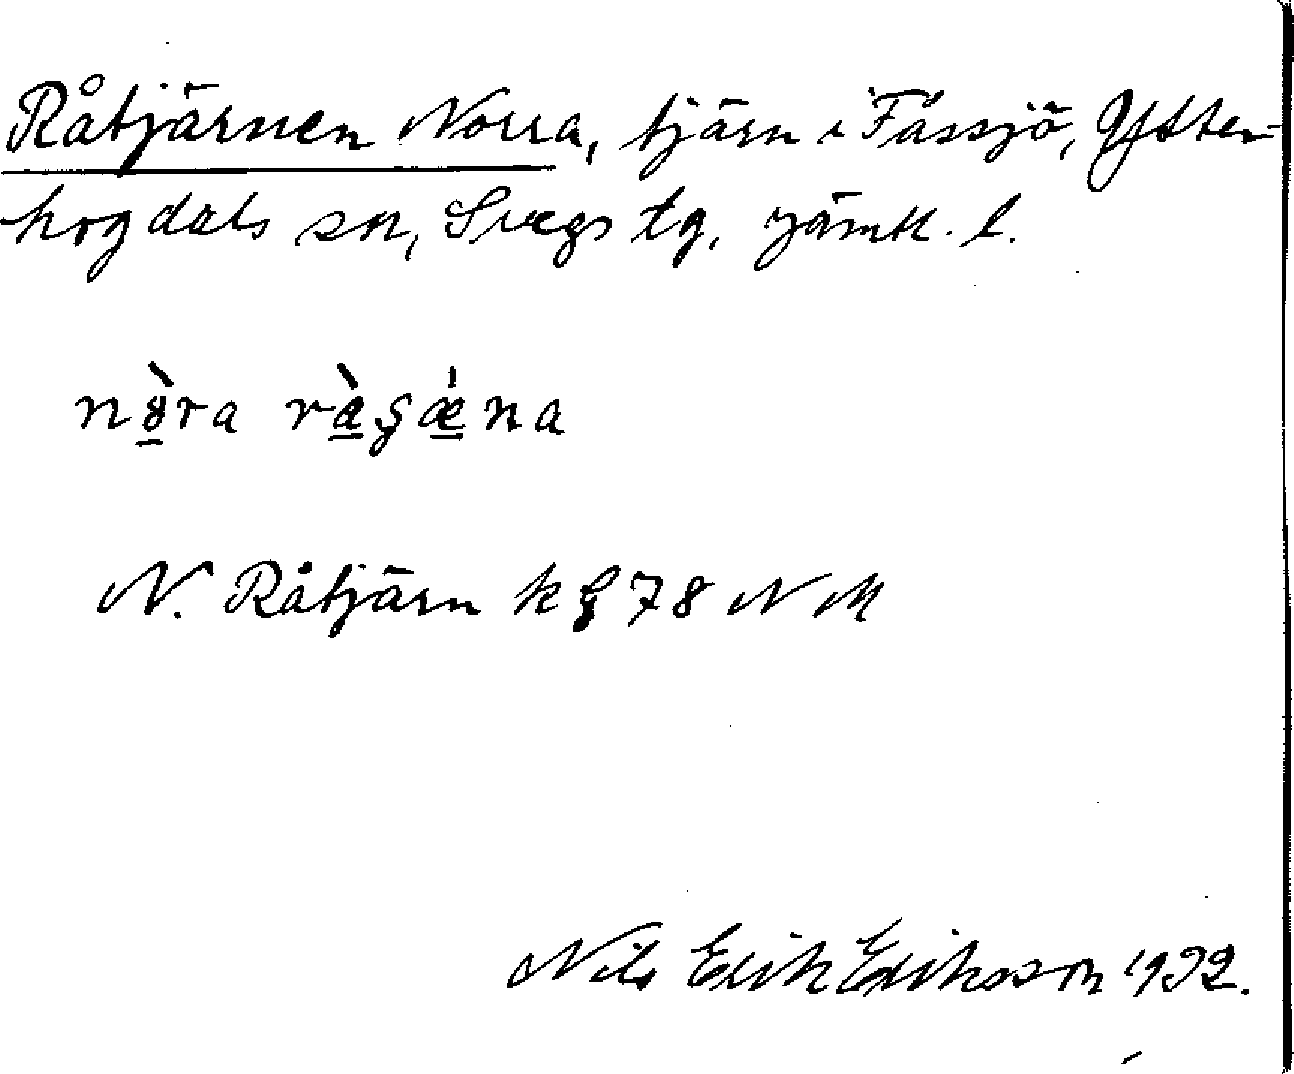 Råtjärnen Norra, tjärn i Fåssjö, Ytter-
hogdals sn, Svegs tg, Jämtl. l.
nò̱ra rà̱ʂǽ̱na
N. Råtjärn k § 78 N M
Nils Erik Eriksson 1932.